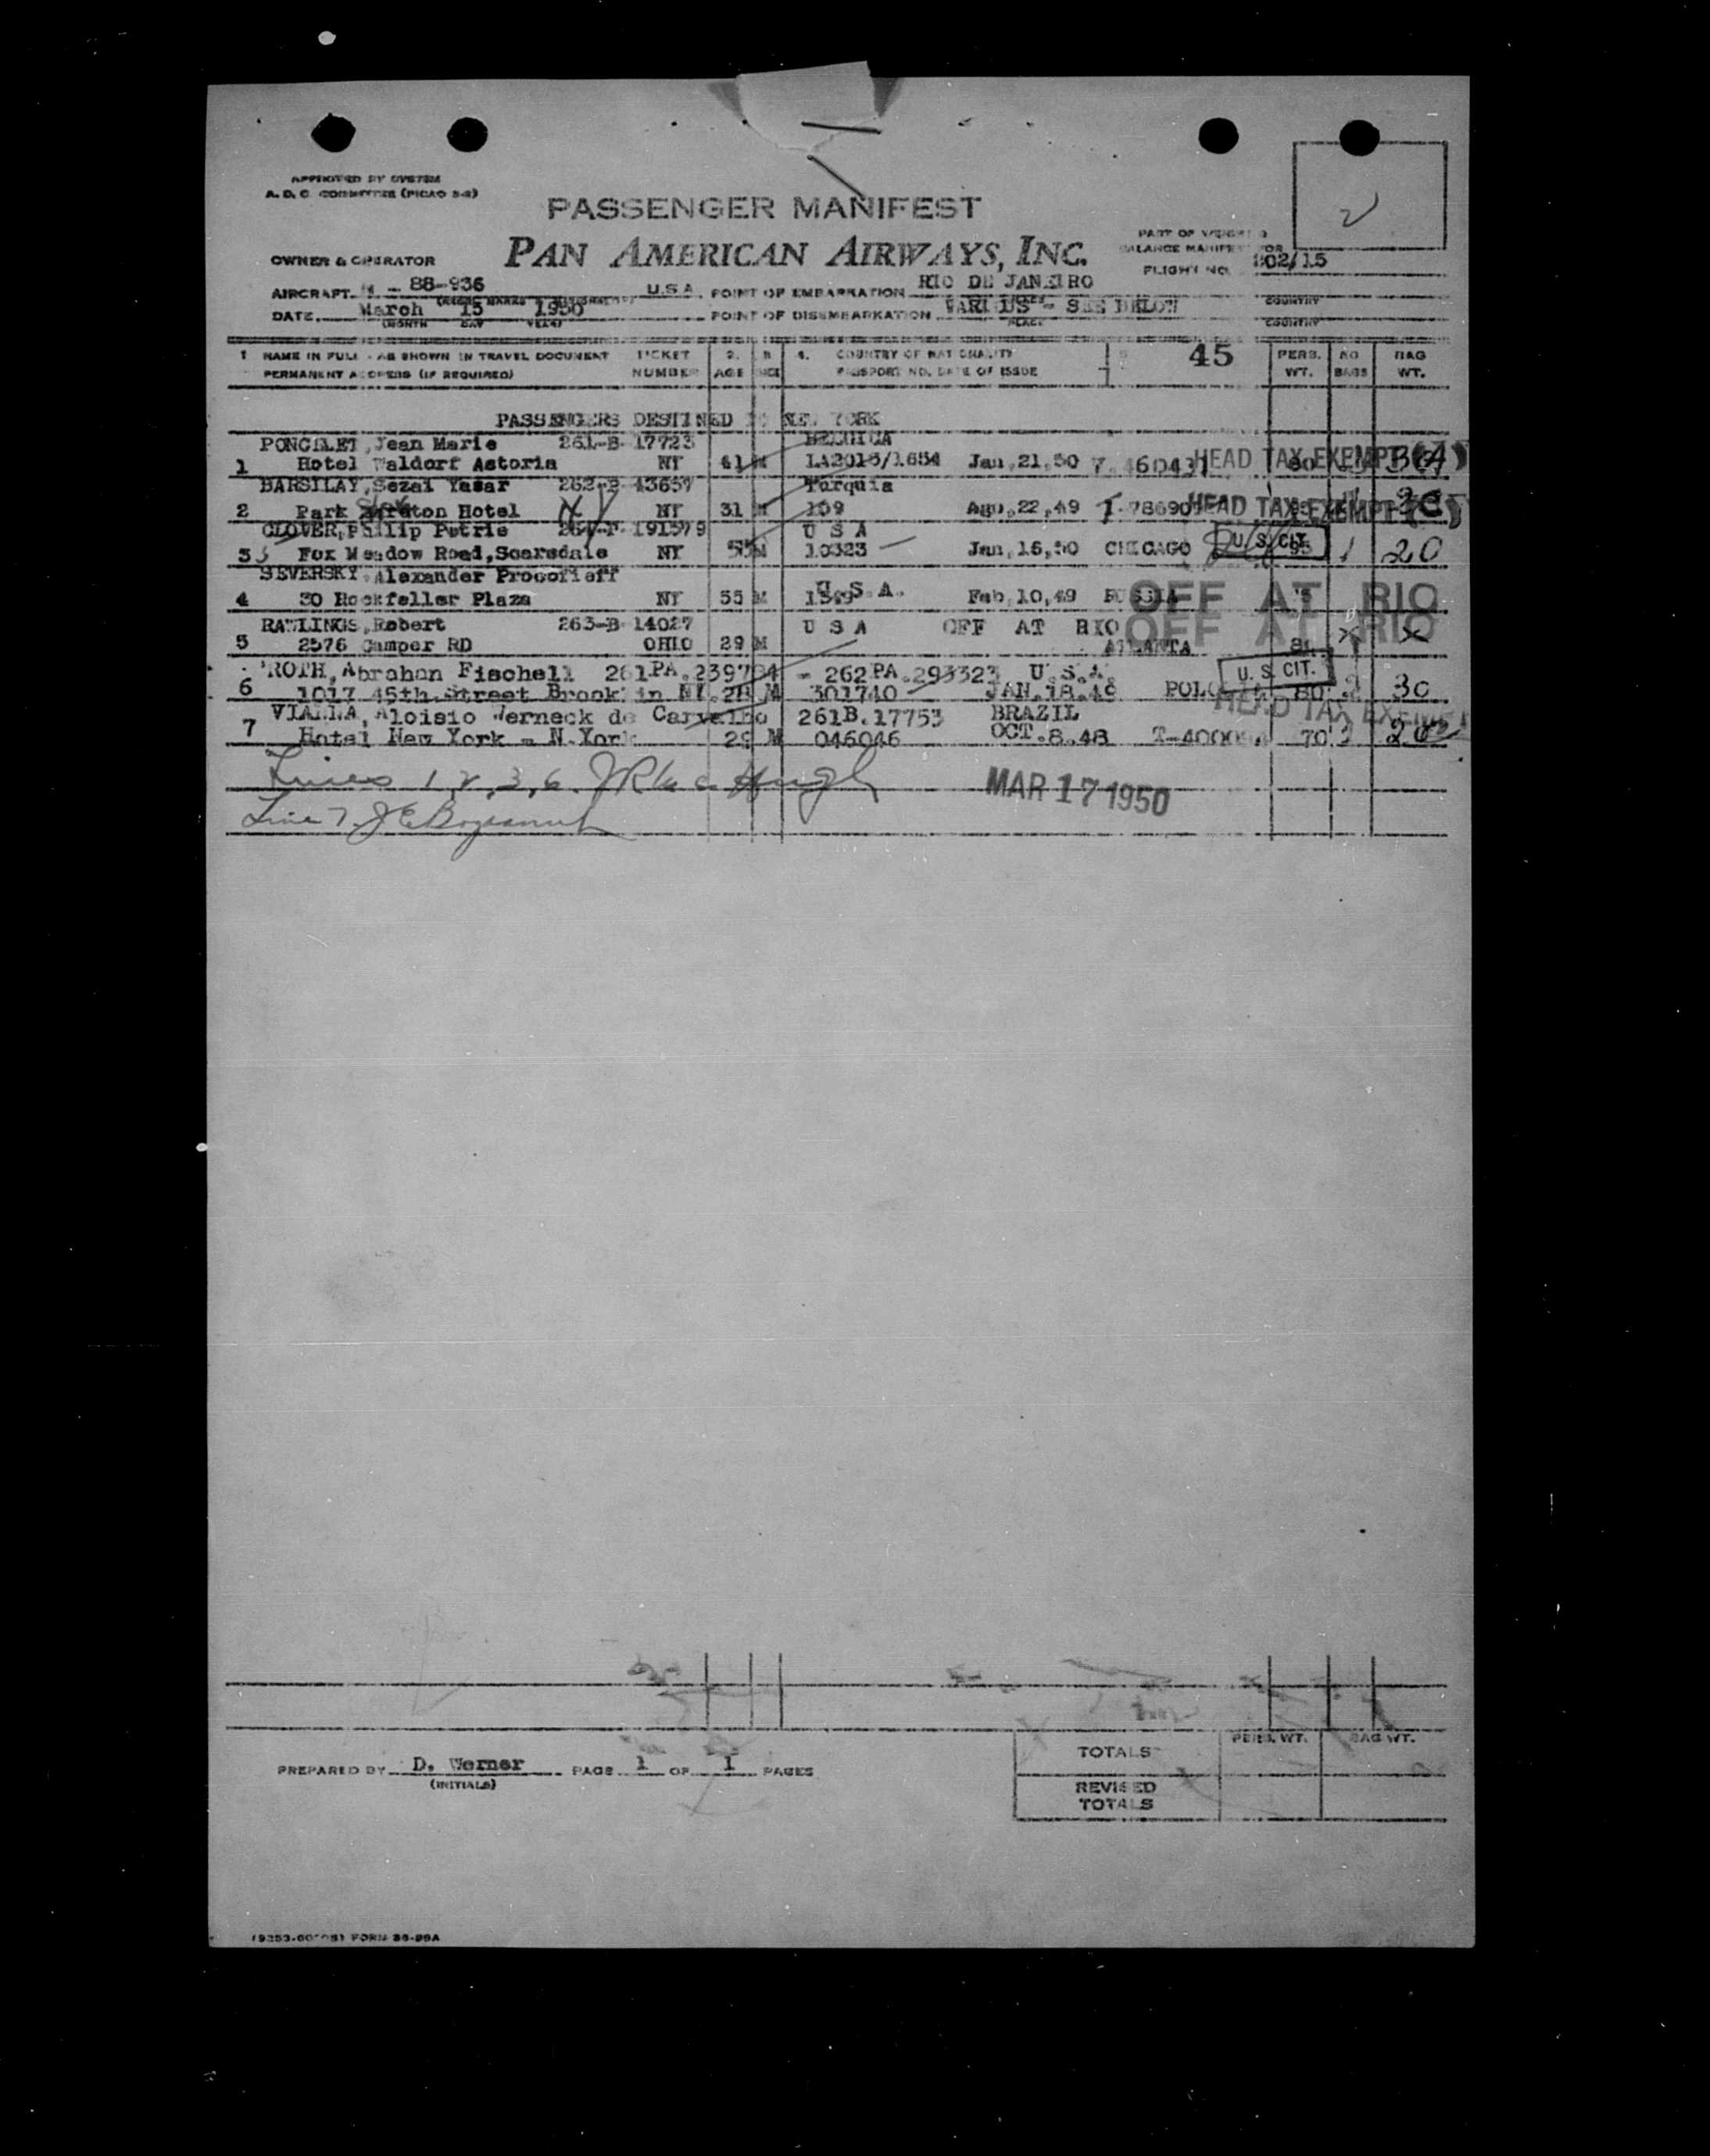 APPROVED BY SYSTEM
A. D. C. COMMITTEE (PICAO 5-2)
2
PASSENGER MANIFEST
PAN AMERICAN AIRWAYS, INC.
OWNER & OPERATOR
PART OF WEIGHT &
BALANCE MANIFEST FOR
FLIGHT NO. 202/15
AIRCRAFT 88-936 U.S.A. POINT OF EMBARKATION RIO DE JANEIRO
DATE March 15 1950 POINT OF DISEMBARKATION VARIOUS - SEE BELOW
(MONTH DAY YEAR) PLACE COUNTRY
1 NAME IN FULL - AS SHOWN IN TRAVEL DOCUMENT TICKET 2. 3. 4. COUNTRY OF NATIONALITY 45 PERS. NO. BAG
PERMANENT ADDRESS (IF REQUIRED) NUMBER AGE SEX PASSPORT NO. DATE OF ISSUE WT. BAGS WT.
PASSENGERS DESTINED TO NEW YORK
PONCELET, Jean Marie 261-B-17723 BELGICA
1 Hotel Waldorf Astoria NY 41 M LA2015/1654 Jan,21,50 HEAD TAX EXEMPT
BARSILAY, Sezai Yasar 262-B-43657 Turquia
2 Park Hotel NY 31 M 109 Ago,22,49 HEAD TAX EXEMPT
CLOVER, Philip Petrie 191579 U S A
3 Fox Meadow Road, Scarsdale NY M 10323 Jan,16,50 CHICAGO U. S. CIT. 1 20
SEVERSKY, Alexander Procofieff U.S.A.
4 30 Rockfeller Plaza NY 55 M Feb,10,49 RUSSIA OFF AT RIO
RAWLINGS, Robert 263-B-14027 U S A OFF AT RIO OFF AT RIO
5 2576 Camper RD OHIO 29 M ATLANTA
ROTH, Abrahan Fischell 261PA.239704 - 262PA.293323 U.S.A.
6 1017 45th.Street Brooklin NY. 28 M 301740 JAN.18.49 U. S. CIT. 80 2 30
VIANNA, Aloisio Werneck de Carvalho 261B.17753 BRAZIL HEAD TAX EXEMPT
7 Hotel New York - N.York 29 M 046046 OCT.8.48 70
Lines 1, 2, 3, 6.
MAR 17 1950
Line 7.
PREPARED BY D. Werner PAGE 1 OF 1 PAGES
(INITIALS)
PERS. WT. BAG WT.
TOTALS
REVISED
TOTALS